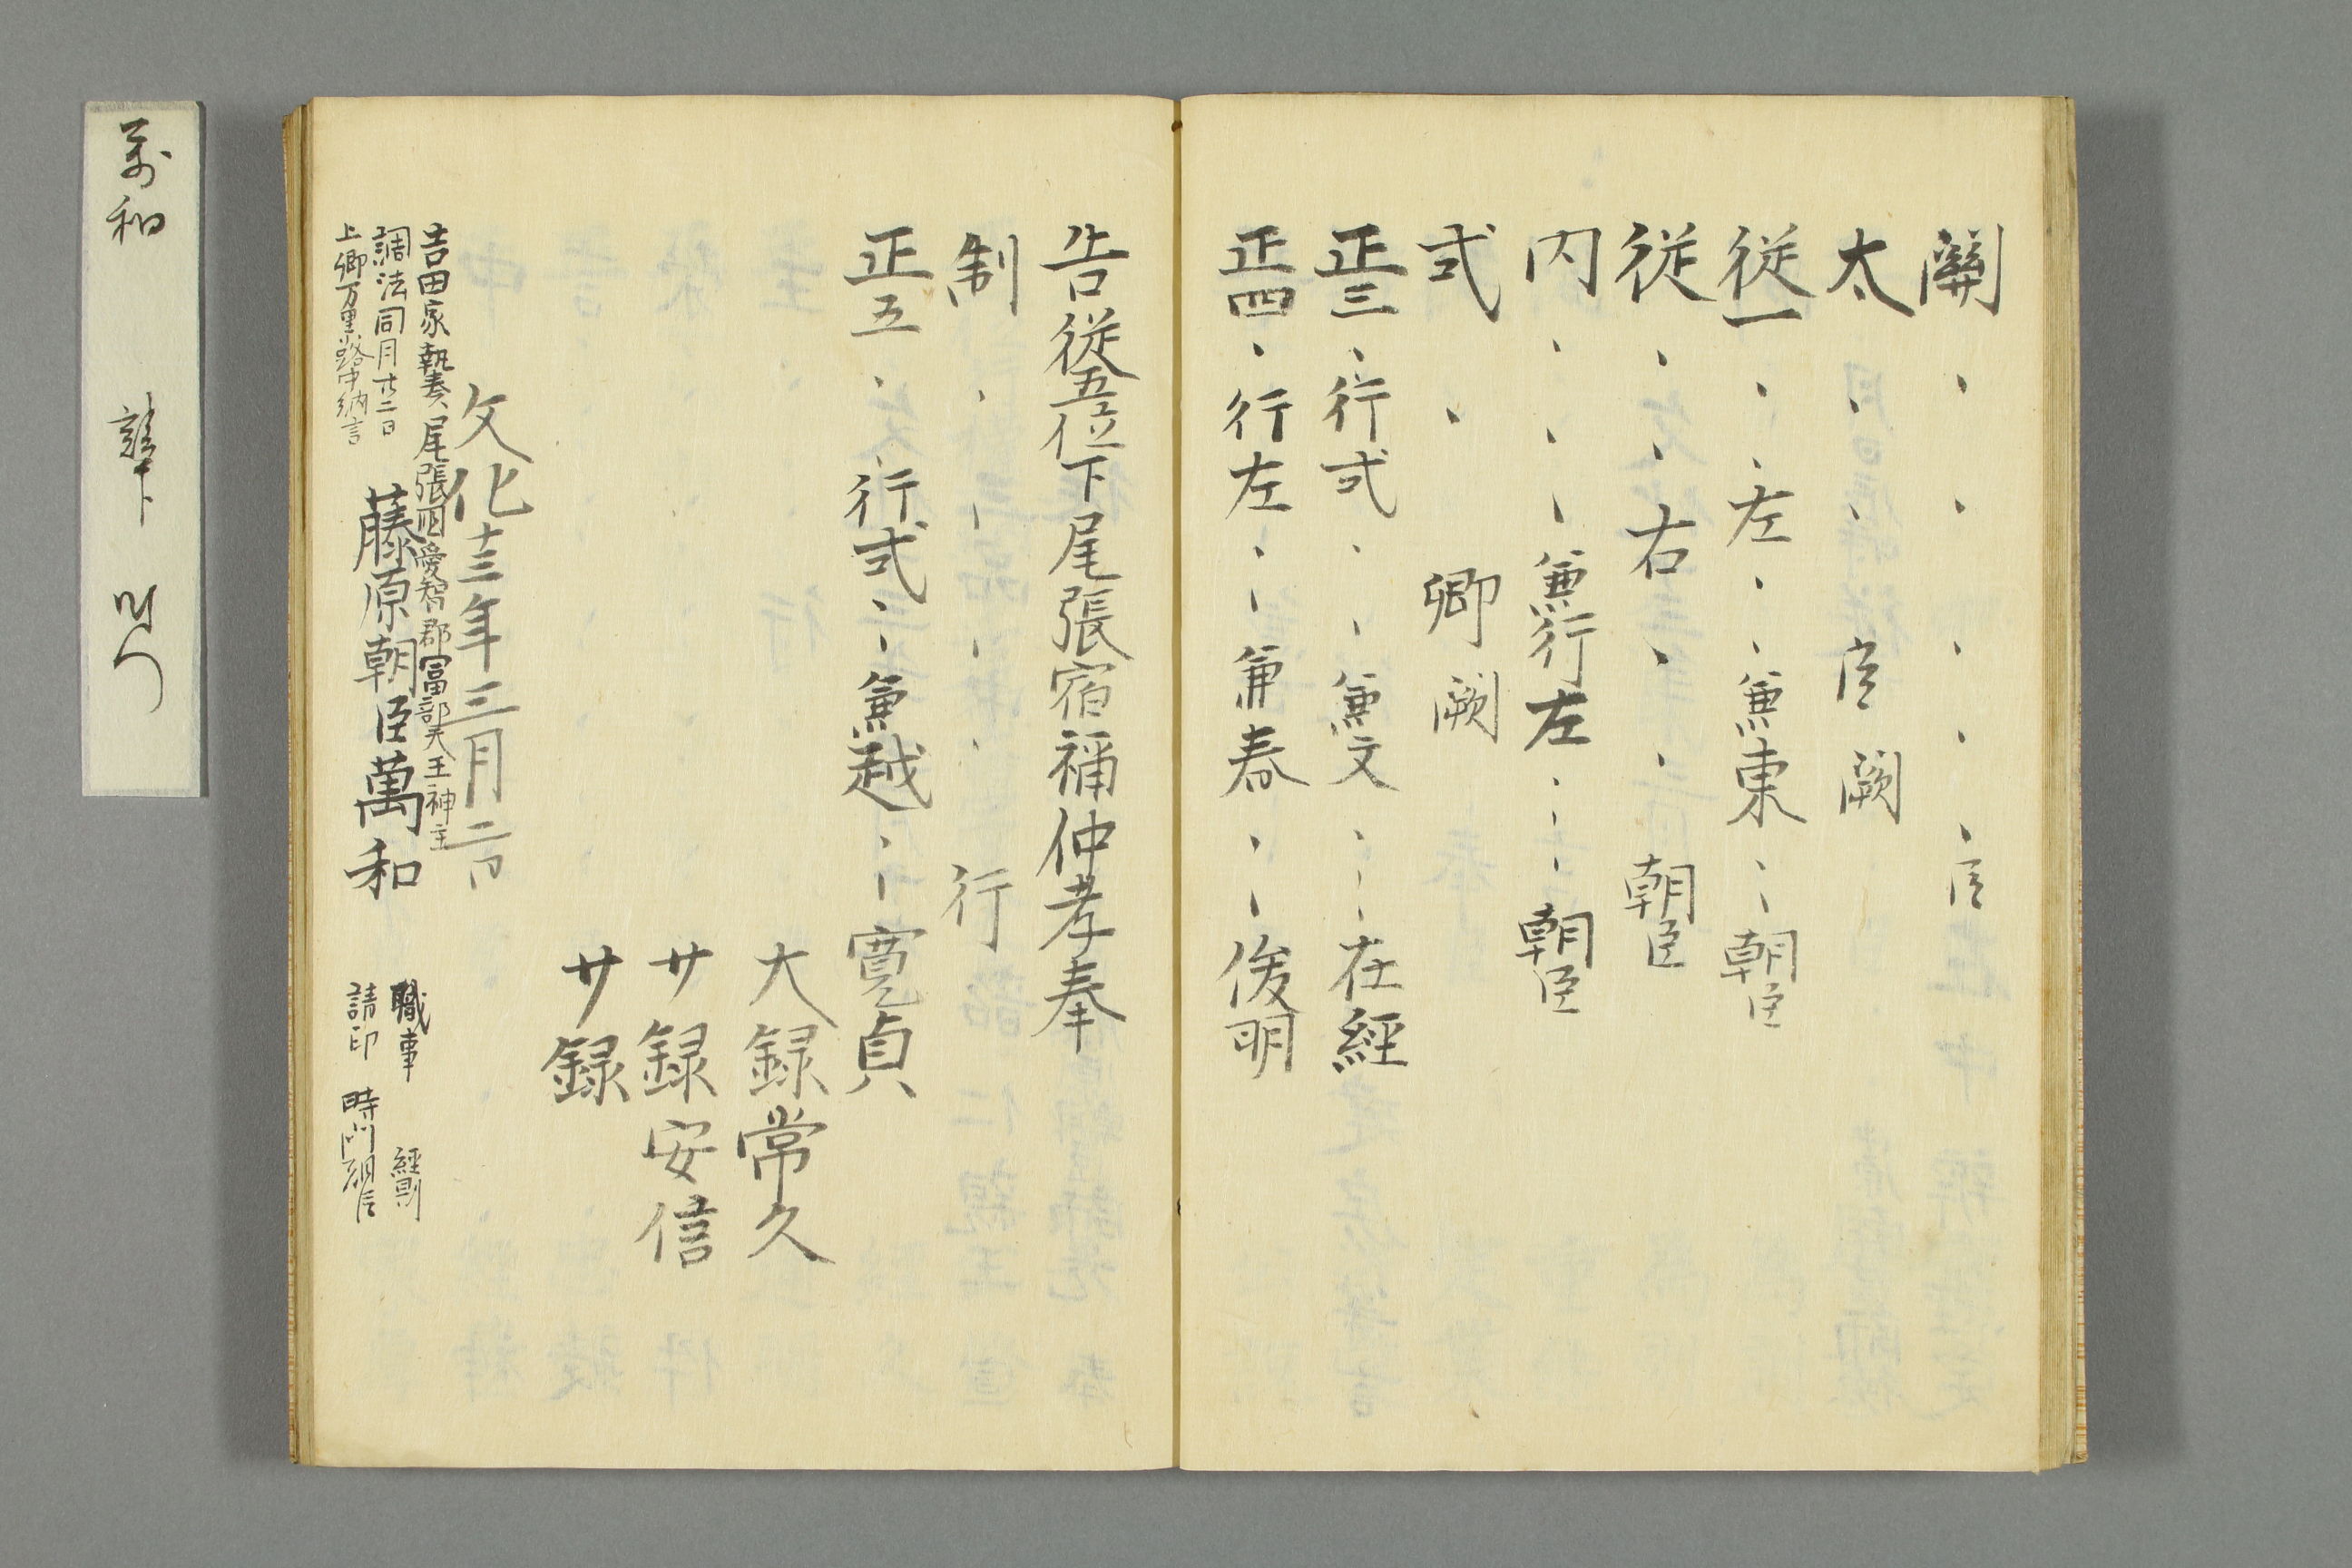 關、、、、、臣
太、、臣闕
従一、、左、、兼東、、朝臣
従、、右、、朝臣
内、、、兼行左、、、、朝臣
式、卿闕
正三、行式、、兼文、、、在經
正四、行左、、兼春、、、俊明
告従五位下尾張宿祢仲孝奉
制、、、、行
正五、、行式、、兼越、、寛貞
大録常久
廿録安信
廿録
文化十三年三月二日
吉田家執奏尾張國愛智郡冨部天王神主
調法同月廿二日
上卿万里小路中納言
藤原朝臣萬和
職事 經則
請印 時門朝臣
萬和